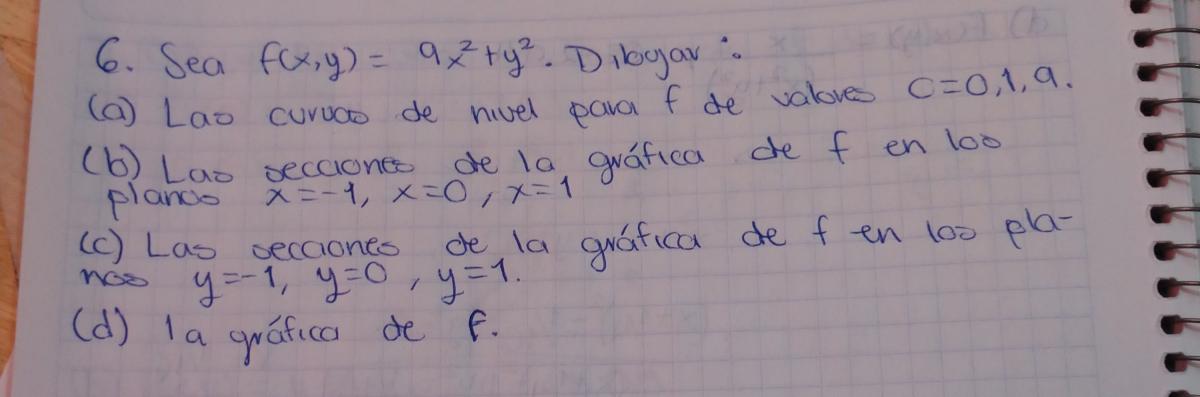 6. Sea f(x,y) = 9x²+y². Dibujar:
(a) Las curvas de nivel para f de valores c=0,1,9.
(b) Las secciones de la gráfica de f en los
planos x=-1, x=0, x=1
(c) Las secciones de la gráfica de f en los pla-
nos y=-1, y=0, y=1.
(d) la gráfica de f.